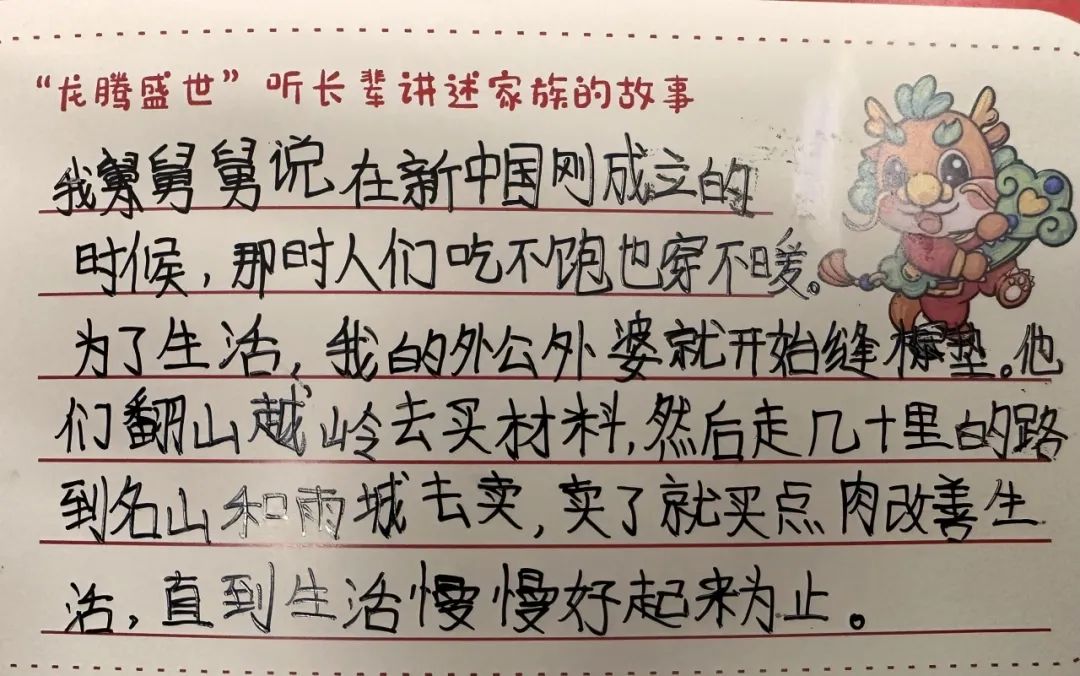 “龙腾盛世”听长辈讲述家族的故事
我舅舅舅说在新中国刚成立的
时候，那时人们吃不饱也穿不暖。
为了生活，我的外公外婆就开始缝棕垫。他
们翻山越岭去买材料，然后走几十里的路
到名山和雨城去卖，卖了就买点肉改善生
活，直到生活慢慢好起来为止。